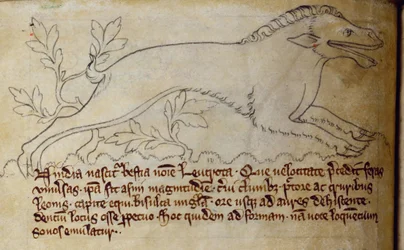 In india nascit᷑ bestia noīe Leucrota. Que uelocitate p̄cedit feras
vniu̓sas. ip̄a est asini magnitudīe. c̓ui clunibꝫ. pectore ac cruribus
leonis. capite equi. bisulca ungl̄a. ore usqꝫ ad aures dehiscente.
dentiū locus osse ꝑpetuo. hoc quidem ad formam. nā uoce loquentium
sonos emulatur.